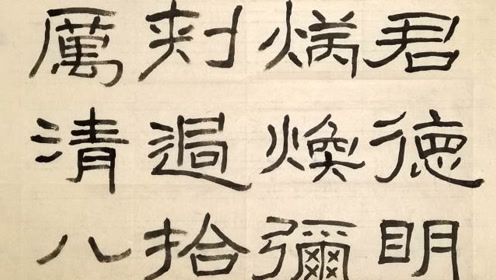 君德明
炳煥彌
刺過拾
厲清八